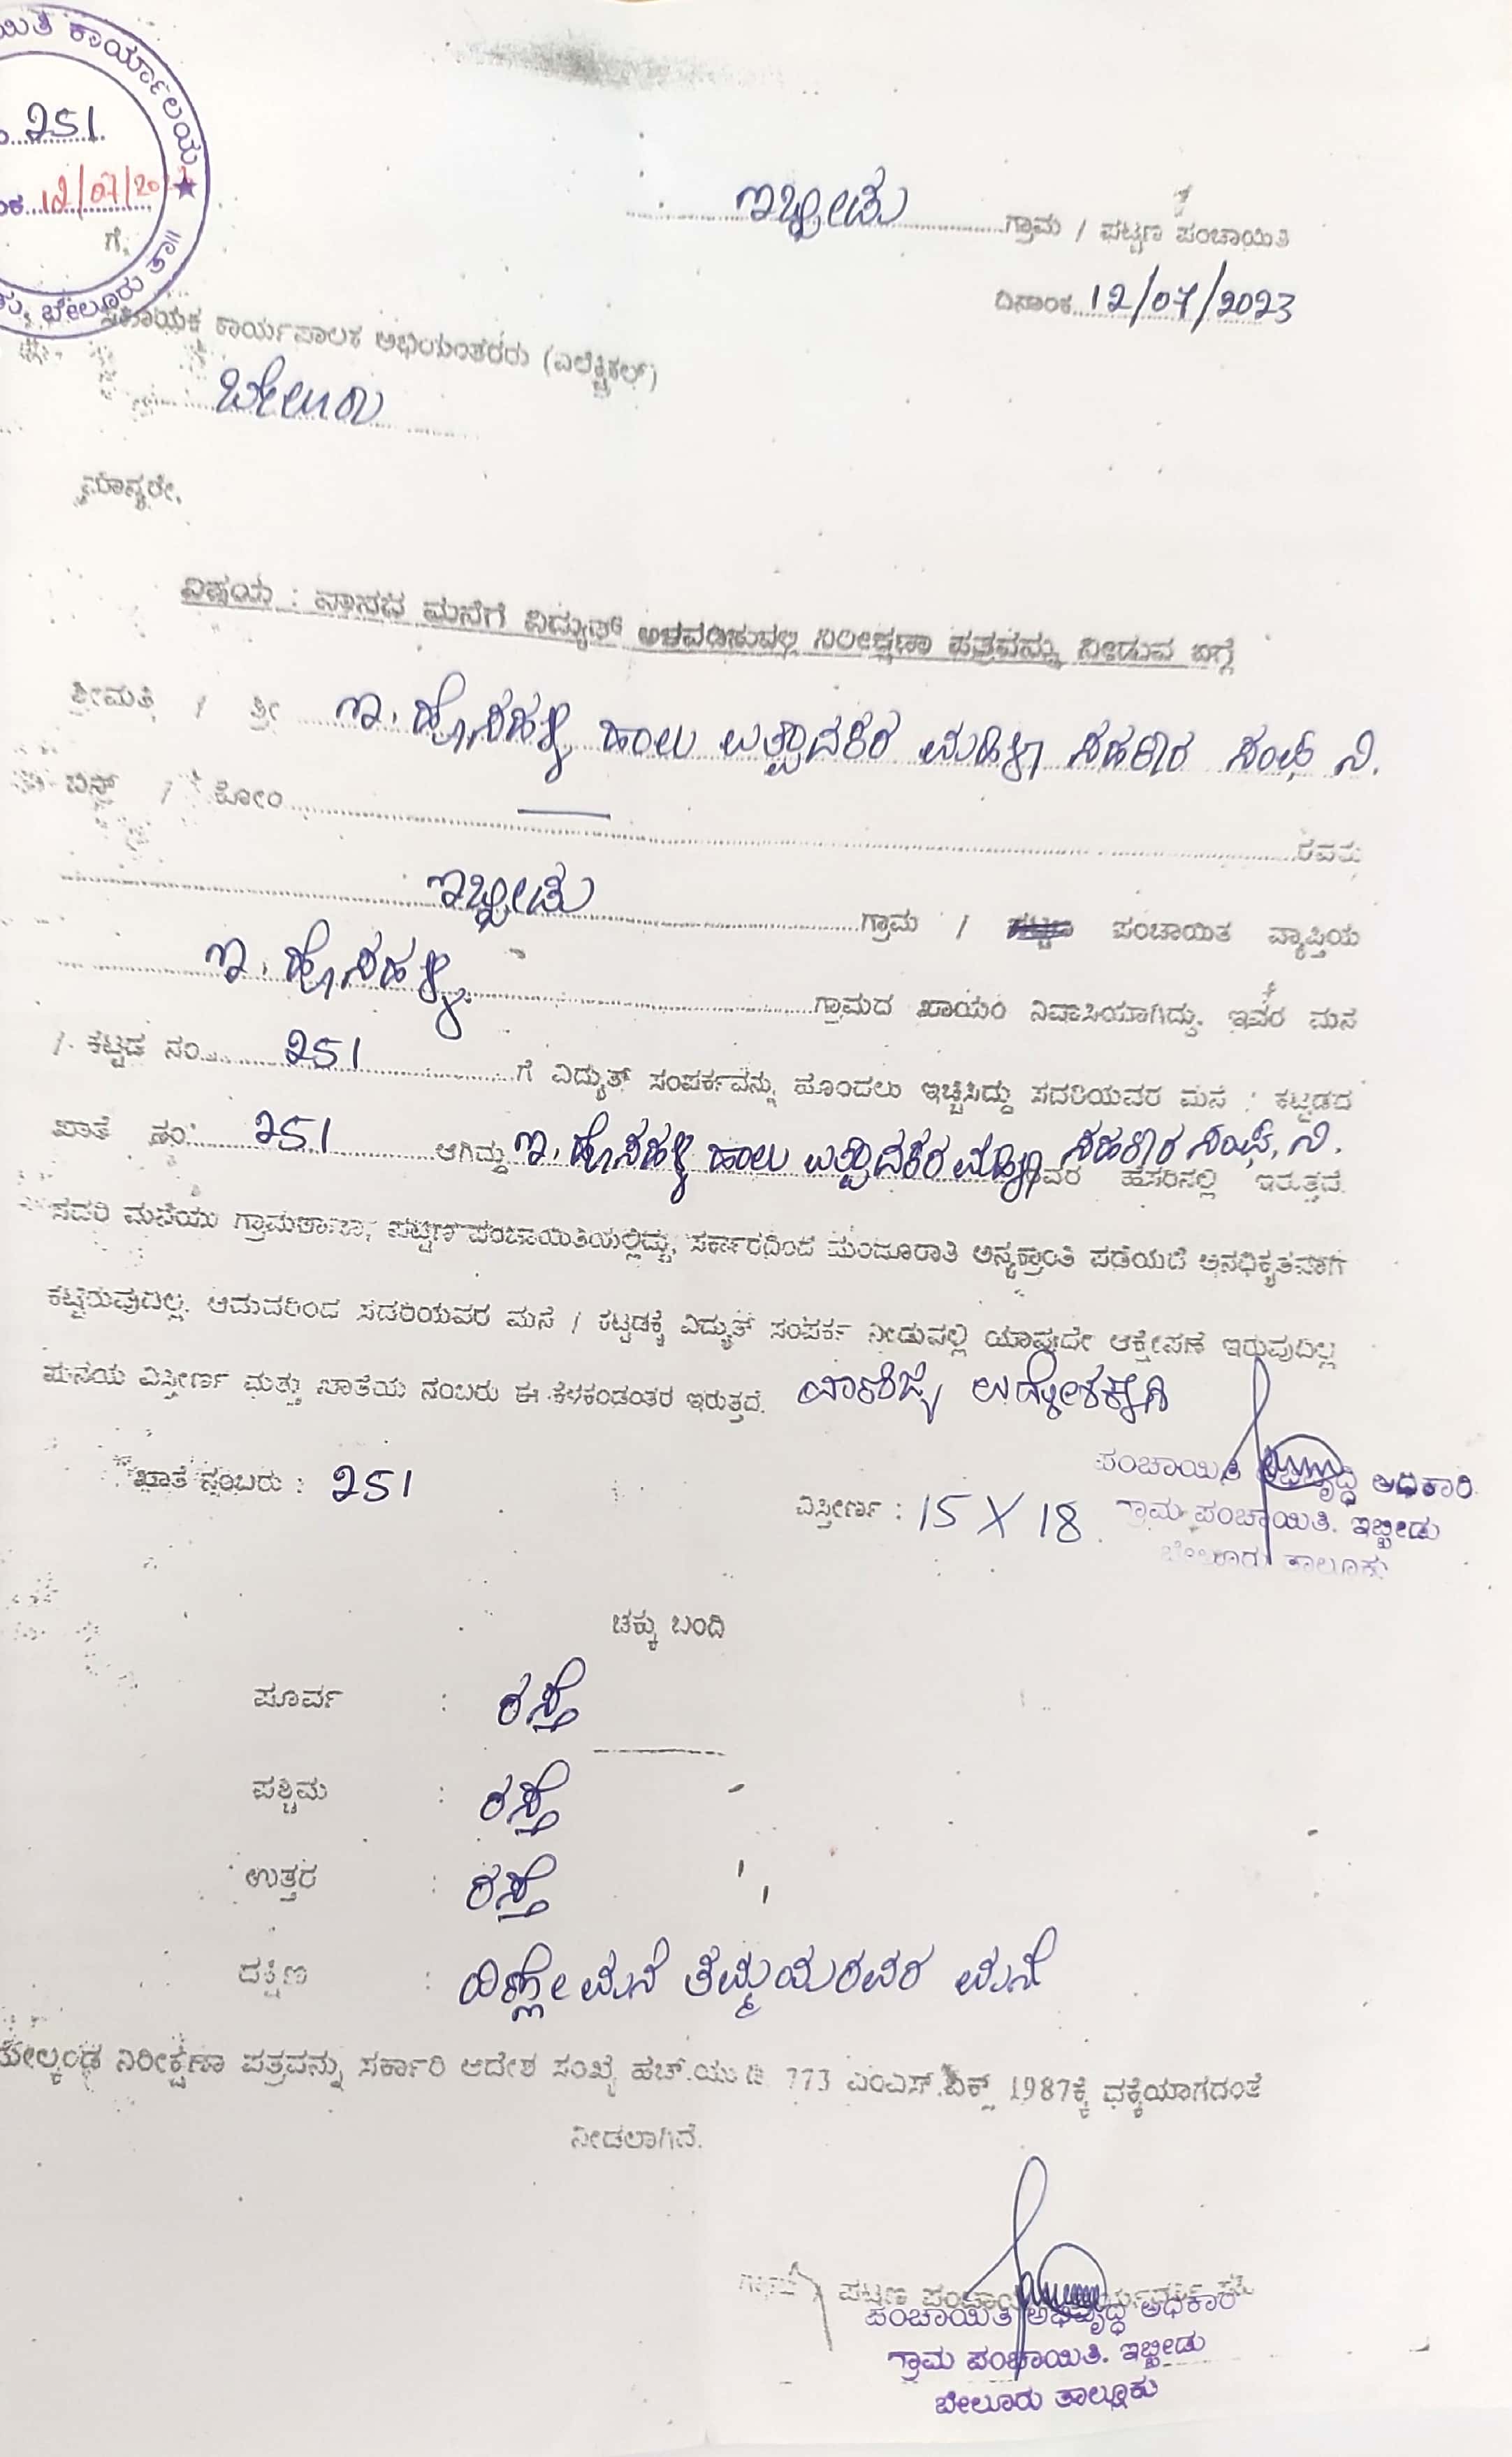 ಕಾರ್ಯಾಲಯ ★
251
12/07/20
ಬೇಲೂರು ತಾ॥
ಇಬ್ಬೀಡು ಗ್ರಾಮ / ಪಟ್ಟಣ ಪಂಚಾಯಿತಿ
ದಿನಾಂಕ 12/07/2023
ಗೆ,
ಸಹಾಯಕ ಕಾರ್ಯಪಾಲಕ ಅಭಿಯಂತರರು (ಎಲೆಕ್ಟ್ರಿಕಲ್)
ಬೇಲೂರು
ಮಾನ್ಯರೇ,
ವಿಷಯ : ವಾಸದ ಮನೆಗೆ ವಿದ್ಯುತ್ ಅಳವಡಿಸುವಲ್ಲಿ ನಿರೀಕ್ಷಣಾ ಪತ್ರವನ್ನು ನೀಡುವ ಬಗ್ಗೆ
ಶ್ರೀಮತಿ / ಶ್ರೀ ಇ. ಹೊಸಹಳ್ಳಿ ಹಾಲು ಉತ್ಪಾದಕರ ಮಹಿಳಾ ಸಹಕಾರ ಸಂಘ ನಿ.
ಬಿನ್ / ಕೋಂ ರವರು
ಇಬ್ಬೀಡು ಗ್ರಾಮ / ಪಂಚಾಯಿತಿ ವ್ಯಾಪ್ತಿಯ
ಇ. ಹೊಸಹಳ್ಳಿ ಗ್ರಾಮದ ಖಾಯಂ ನಿವಾಸಿಯಾಗಿದ್ದು, ಇವರ ಮನೆ
/ ಕಟ್ಟಡ ನಂ. 251 ಗೆ ವಿದ್ಯುತ್ ಸಂಪರ್ಕವನ್ನು ಹೊಂದಲು ಇಚ್ಛಿಸಿದ್ದು ಸದರಿಯವರ ಮನೆ / ಕಟ್ಟಡದ
ಖಾತೆ ನಂ: 251 ಆಗಿದ್ದು ಇ. ಹೊಸಹಳ್ಳಿ ಹಾಲು ಉತ್ಪಾದಕರ ಮಹಿಳಾ ಸಹಕಾರ ಸಂಘ. ನಿ. ರವರ ಹೆಸರಿನಲ್ಲಿ ಇರುತ್ತದೆ.
ಸದರಿ ಮನೆಯು ಗ್ರಾಮಠಾಣಾ, ಪಟ್ಟಣ ಪಂಚಾಯಿತಿಯಲ್ಲಿದ್ದು, ಸರ್ಕಾರದಿಂದ ಮಂಜೂರಾತಿ ಅನ್ಯಕ್ರಾಂತಿ ಪಡೆಯದೆ ಅನಧಿಕೃತವಾಗಿ
ಕಟ್ಟಿರುವುದಿಲ್ಲ. ಆದುದರಿಂದ ಸದರಿಯವರ ಮನೆ / ಕಟ್ಟಡಕ್ಕೆ ವಿದ್ಯುತ್ ಸಂಪರ್ಕ ನೀಡುವಲ್ಲಿ ಯಾವುದೇ ಆಕ್ಷೇಪಣೆ ಇರುವುದಿಲ್ಲ
ಮನೆಯ ವಿಸ್ತೀರ್ಣ ಮತ್ತು ಖಾತೆಯ ನಂಬರು ಈ ಕೆಳಕಂಡಂತೆ ಇರುತ್ತದೆ. ವಾಣಿಜ್ಯ ಉದ್ದೇಶಕ್ಕಾಗಿ
ಖಾತೆ ನಂಬರು : 251
ವಿಸ್ತೀರ್ಣ : 15 X 18
ಪಂಚಾಯಿತಿ ಅಭಿವೃದ್ಧಿ ಅಧಿಕಾರಿ
ಗ್ರಾಮ ಪಂಚಾಯಿತಿ. ಇಬ್ಬೀಡು
ಬೇಲೂರು ತಾಲೂಕು
ಚಕ್ಕು ಬಂದಿ
ಪೂರ್ವ : ರಸ್ತೆ
ಪಶ್ಚಿಮ : ರಸ್ತೆ
ಉತ್ತರ : ರಸ್ತೆ
ದಕ್ಷಿಣ : ಮನೆ ತಿಮ್ಮಯ್ಯರವರ ಮನೆ
ಮೇಲ್ಕಂಡ ನಿರೀಕ್ಷಣಾ ಪತ್ರವನ್ನು ಸರ್ಕಾರಿ ಆದೇಶ ಸಂಖ್ಯೆ ಹಚ್.ಯು.ಡಿ. 773 ಎಂಎಸ್. 1987ಕ್ಕೆ ಧಕ್ಕೆಯಾಗದಂತೆ
ನೀಡಲಾಗಿದೆ.
ಪಟ್ಟಣ
ಪಂಚಾಯಿತಿ ಅಭಿವೃದ್ಧಿ ಅಧಿಕಾರಿ
ಗ್ರಾಮ ಪಂಚಾಯಿತಿ. ಇಬ್ಬೀಡು
ಬೇಲೂರು ತಾಲ್ಲೂಕು